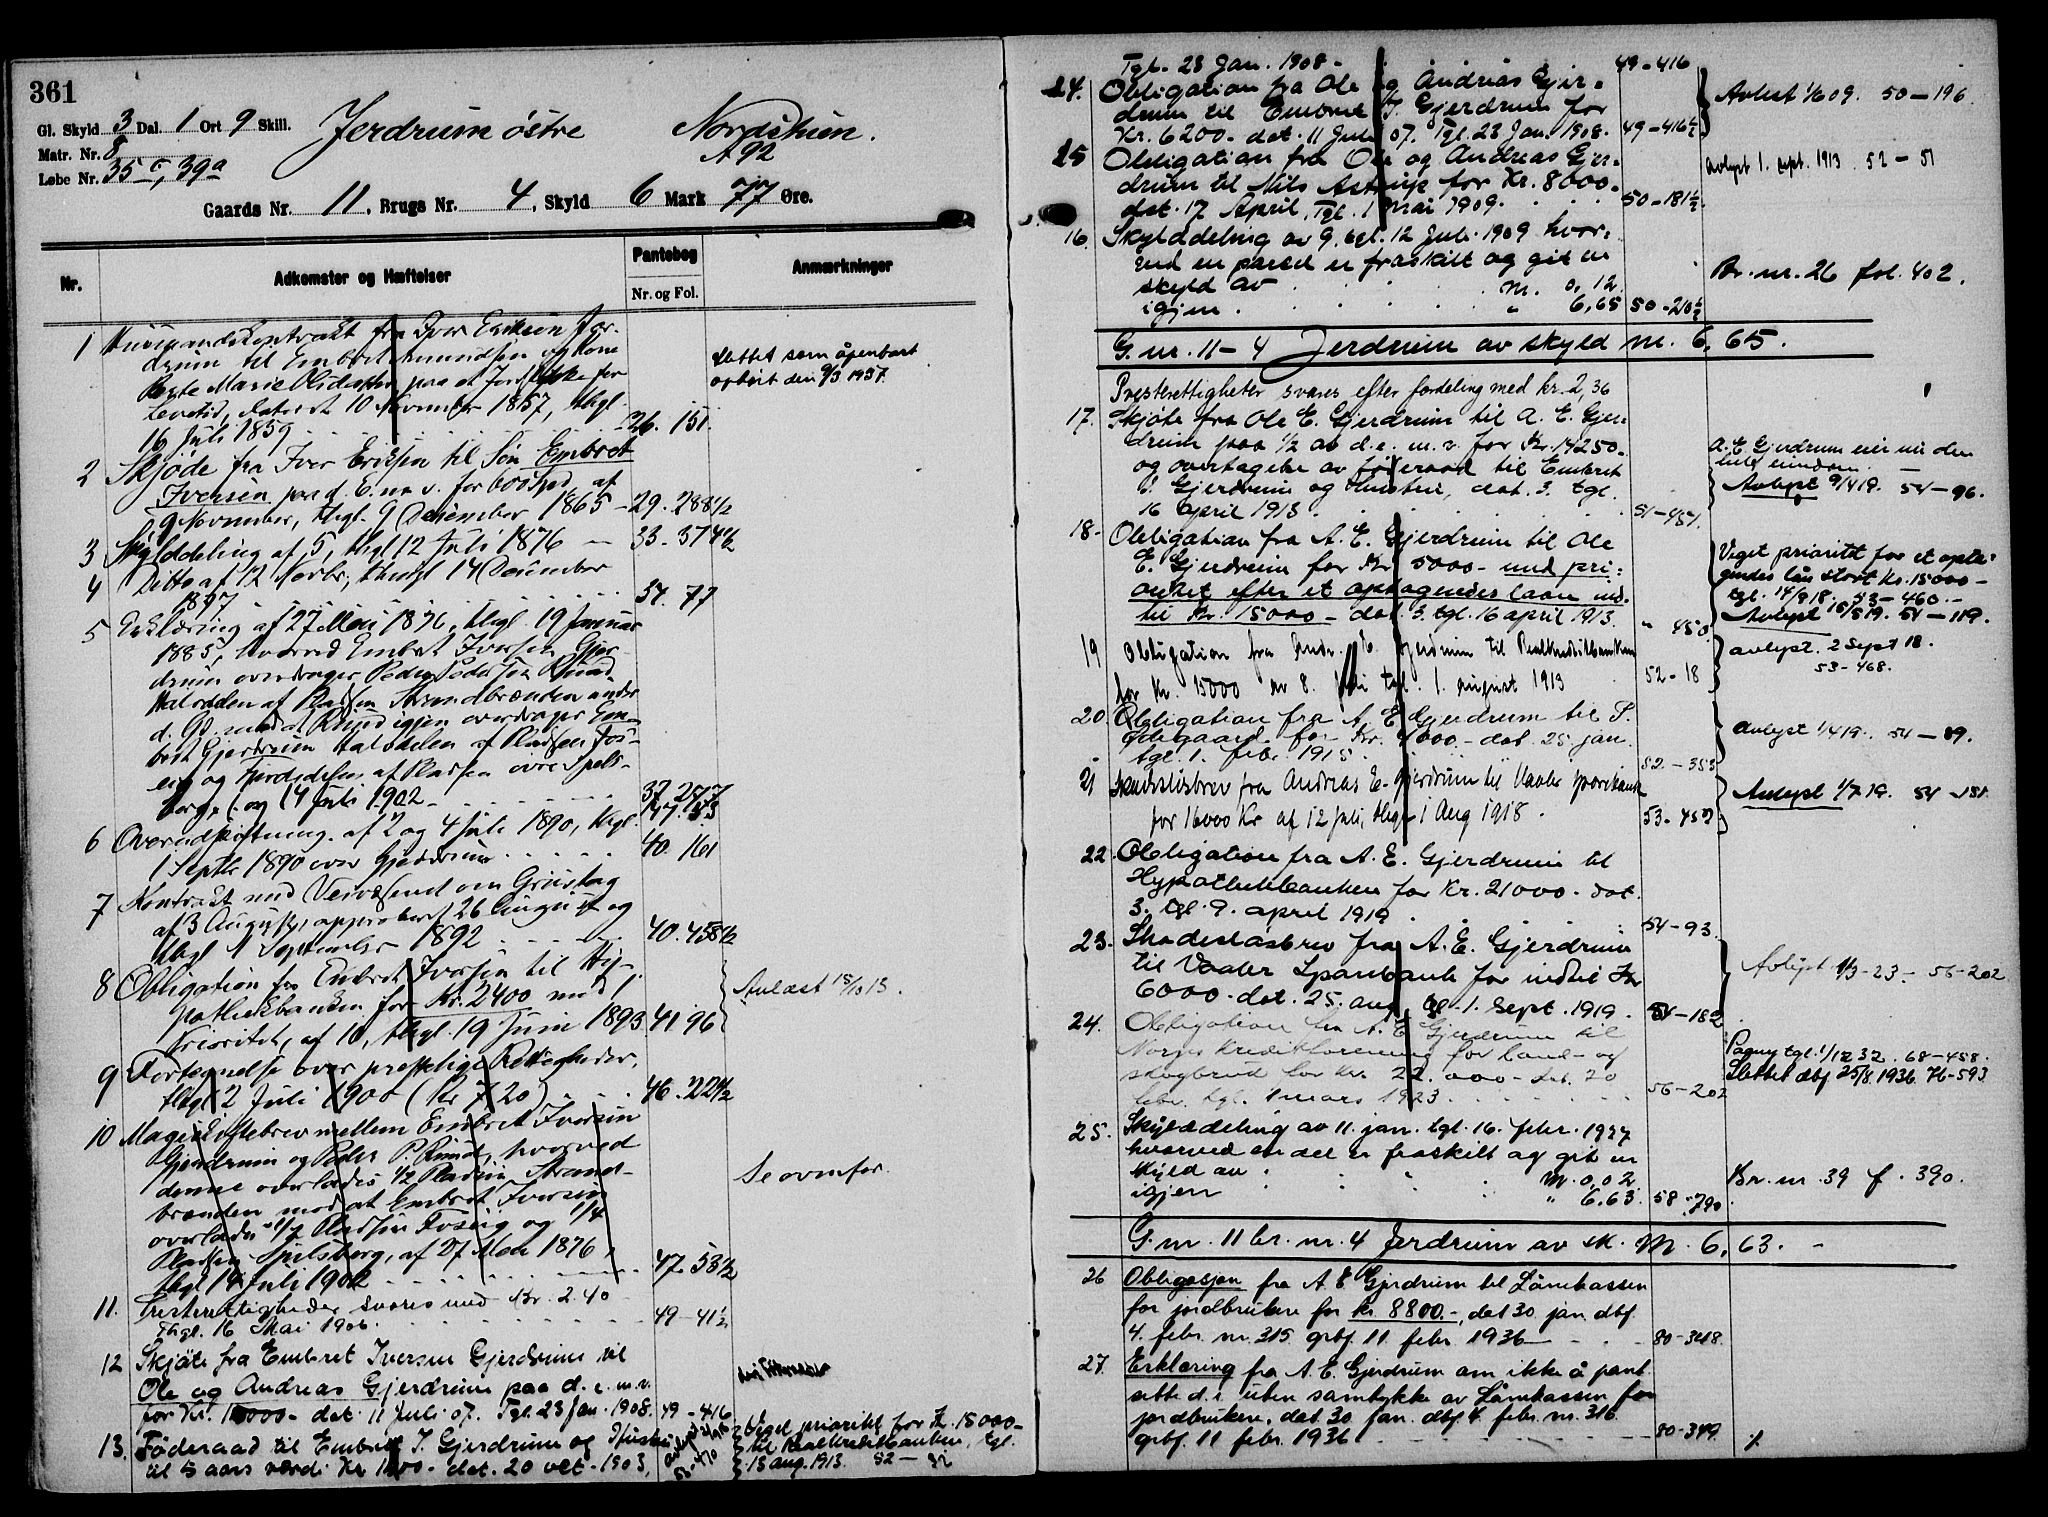 361
Gl. Skyld 3 Dal. 1 Ort 9 Skill. Jerdrum østre Nordskien.
Matr. Nr. 8 A92
Løbe Nr. 35 c, 39a
Gaards Nr. 11, Brugs Nr. 4, Skyld 6 Mark 77 Øre.
Nr. Adkomster og Hæftelser Pantebog Nr. og Fol. Anmærkninger
1 Huusmandskontrakt fra Iver Eriksen Jer-
drum til Embret Amundsen og Kone
Marie Olsdatter paa et Jordstykke for
Levetid, dateret 10 November 1857, thgl
16 Juli 1859 26. 151.
slettet som åpenbart
ophørt den 9/3 1937.
2 Skjøde fra Iver Eriksen til Søn Embret
Iversen paa d. E. m. v. for 600 Spd, af
9 November, thgl. 9 December 1865 - 29. 288 1/2
3 Skylddeling af 5, thgl 12 Juli 1876 - 33. 374 1/2
4 Ditto af 12 Novbr, thingl 14 December
1897 34. 77
5 Erklæring af 27 Mai 1876, thgl. 19 Januar
1885, hvorved Embret Iversen Gjer-
drum overdrager Peder Pedersen Rund
Halvdelen af Pladsen Strandbrænden under
d. Gd. mod at Rund igjen overdrager Em-
bret Gjerdrum Halvdelen af Pladsen Fos-
eig og Fjerdedelen af Pladsen øvre Spels-
berg, og 14 Juli 1902 37. 257
47. 53
6 Overudskiftning af 2 og 4 Juli 1890, thgl.
1 Septbr 1890 over Gjerdrum 40. 161
7 Kontrakt med Veivæsenet om Grustag
af 3 August, approberet 26 August og
thgl 1 September 1892 40. 458 1/2
8 Obligation fra Embret Iversen til Hy-
pothekbanken for Kr. 2400 med 1
Prioritet, af 10, thgl. 19 Juni 1893. 41. 96
Avlæst 15/10 13.
9 Fortegnelse over præstelige Rettigheder,
thgl 2 Juli 1900 (Kr 7.20) 46. 224 1/2
10 Mageskiftebrev mellem Embret Iversen
Gjerdrum og Peder P. Rund, hvorved
denne overlades 1/2 Pladsen Strand-
brænden mod at Embret Iversen
overlader 1/2 Pladsen Foseig og 1/4
Pladsen Spelsberg, af 27 Mai 1876,
thgl 14 Juli 1902 47. 53 1/2
Se ovenfor.
11. Presterettigheder svares med Kr. 2.40
Thgl. 16 Mai 1906. 49 - 41 1/2
12 Skjøte fra Embret Iversen Gjerdrum til
Ole og Andreas Gjerdrum paa d. e. m. v.
for Kr. 10000 - dat. 11 Juli 07. Tgl. 23 Jan. 1908. 49 - 416
13. Føderaad til Embret I. Gjerdrum og Hustru
til 5 aars værdi Kr 1000 - dat. 20 okt. 1903,
Veget prioritet for Kr. 15000 -
til Realkreditbanken, tgl.
13 aug. 1913. 52 - 32
Tgl. 23 Jan. 1908 - 49 - 416
14. Obligation fra Ole og Andreas Gjer-
drum til Embret I. Gjerdrum for
Kr. 6200 - dat. 11 Juli 07. Tgl. 23 Jan. 1908. 49 - 416 1/2
Avlest 1/6 09. 50 - 196.
15 Obligation fra Ole og Andreas Gjer-
drum til Nils Astrup for Kr. 8000 -
dat. 17 April, Tgl. 1 Mai 1909. 50 - 181 1/2
avlyst 1. sept. 1913 52 - 51
16. Skylddeling av 9, tgl. 12 Juli 1909 hvor-
ved en parsel er fraskilt og git en
skyld av m. 0,12
igjen " 6,65 50 - 210 1/2
Br. nr. 26 fol. 402.
G. nr. 11 - 4 Jerdrum av skyld m. 6,65.
Presterettigheter svares efter fordeling med kr. 2,36
17. Skjøte fra Ole E. Gjerdrum til A. E. Gjer-
drum paa 1/2 av d. e. m. v. for Kr. 14250 -
og overtagelse av føderaad til Embret
I. Gjerdrum og Hustru, dat. 3. tgl.
16 april 1913 51 - 451.
A. E. Gjerdrum eier nu den
hele eiendom. -
Avlyst 9/4 19. 54 - 96.
18. Obligation fra A. E. Gjerdrum til Ole
E. Gjerdrum for Kr 5000 - med pri-
oritet efter et optagendes laan ind-
til Kr. 15000 - dat. 3. tgl. 16 april 1913. " 450.
Veget prioritet for et opta-
gendes lån stort Kr. 15000 -
tgl. 14/8 18. 53 - 460. -
Avlyst 15/5 19. 54 - 119.
19 Obligation fra Andr. E. Gjerdrum til Realkreditbanken
for Kr. 15000 av 8. Juli tgl. 1. august 1913 52 - 18
avlyst. 2 Sept 18.
53 - 468.
20. Obligation fra A. E. Gjerdrum til S.
Ødegaard for Kr. 4000 - dat. 25 jan.
tgl. 1. febr. 1915. 52 - 353
avlyst 1/4 19. 54 - 89.
21 Skadesløsbrev fra Andreas E. Gjerdrum til Vaaler Sparebank
for 16000 Kr af 12 juli, thgl. 1 Aug 1918. 53 - 459
Avlyst 1/7 19. 54 - 151
22. Obligation fra A. E. Gjerdrum til
Hypothekbanken for Kr. 21000 - dat.
3. tgl. 9. april 1919 54 - 93.
23. Skadesløsbrev fra A. E. Gjerdrum
til Vaaler Sparebank for indtil Kr
6000 - dat. 25. aug tgl. 1. Sept. 1919. 54 - 182
Avlyst 1/3 - 23 - 56 - 202
24. Obligation fra A. E. Gjerdrum til
Norges Kreditforening for land- og
skogbruk for kr. 22.000 - dat. 20
febr. tgl. 1 mars 1923 56 - 202
Pagny tgl. 1/12 32. 68 - 458.
Slettet dbf 25/8. 1936. 76 - 593
25. Skylddeling av 11. jan. tgl. 16. febr. 1927
hvorved en del er fraskilt og git en
skyld av M. 0,02
igjen " 6,63. 58 - 790
Br. nr. 39 f. 390.
G. nr. 11 br. nr. 4 Jerdrum av sk. M. 6,63. -
26 Obligasjon fra A E Gjerdrum til Lånekassen
for jordbrukere for kr. 8800.-, dat 30 jan. dbf.
4. febr. nr. 315 grbf. 11 febr 1936 80 - 348.
27. Erklæring fra A. E. Gjerdrum om ikke å pant-
sette d. e. uten samtykke av Lånekassen for
jordbrukere, dat. 30 jan. dbf. 4. febr. nr. 316
grbf. 11 febr. 1936 80 - 349.